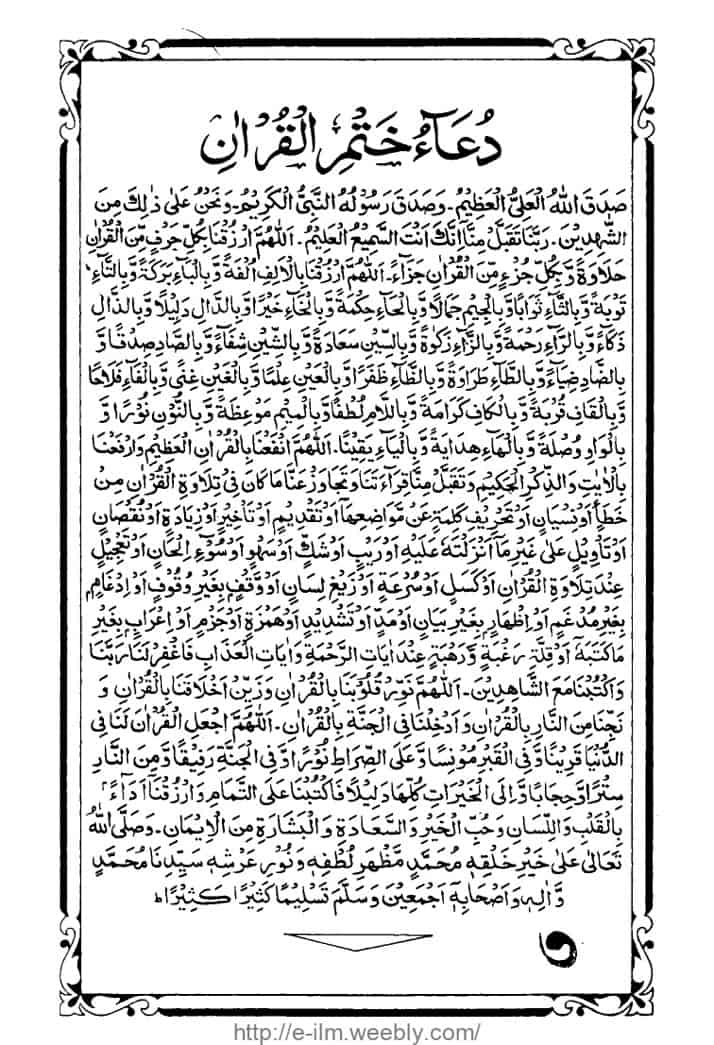 دُعَآءُ خَتْمِ الْقُرْاٰنِ
صَدَقَ اللّٰهُ الْعَلِىُّ الْعَظِيْمُ۔ وَصَدَقَ رَسُوْلُهُ النَّبِىُّ الْكَرِيْمُ۔ وَنَحْنُ عَلٰى ذٰلِكَ مِنَ
الشّٰهِدِيْنَ۔ رَبَّنَا تَقَبَّلْ مِنَّا اِنَّكَ اَنْتَ السَّمِيْعُ الْعَلِيْمُ۔ اَللّٰهُمَّ ارْزُقْنَا بِكُلِّ حَرْفٍ مِّنَ الْقُرْاٰنِ
حَلَاوَةً وَّبِكُلِّ جُزْءٍ مِّنَ الْقُرْاٰنِ جَزَآءً۔ اَللّٰهُمَّ ارْزُقْنَا بِالْاَلِفِ اُلْفَةً وَّبِالْبَآءِ بَرَكَةً وَّبِالتَّآءِ
تَوْبَةً وَّبِالثَّآءِ ثَوَابًا وَّبِالْجِيْمِ جَمَالًا وَّبِالْحَآءِ حِكْمَةً وَّبِالْخَآءِ خَيْرًا وَّبِالدَّالِ دَلِيْلًا وَّبِالذَّالِ
ذَكَآءً وَّبِالرَّآءِ رَحْمَةً وَّبِالزَّآءِ زَكٰوةً وَّبِالسِّيْنِ سَعَادَةً وَّبِالشِّيْنِ شِفَآءً وَّبِالصَّادِ صِدْقًا وَّ
بِالضَّادِ ضِيَآءً وَّبِالطَّآءِ طَرَاوَةً وَّبِالظَّآءِ ظَفَرًا وَّبِالْعَيْنِ عِلْمًا وَّبِالْغَيْنِ غِنًى وَّبِالْفَآءِ فَلَاحًا
وَّبِالْقَافِ قُرْبَةً وَّبِالْكَافِ كَرَامَةً وَّبِاللَّامِ لُطْفًا وَّبِالْمِيْمِ مَوْعِظَةً وَّبِالنُّوْنِ نُوْرًا وَّ
بِالْوَاوِ وُصْلَةً وَّبِالْهَآءِ هِدَايَةً وَّبِالْيَآءِ يَقِيْنًا۔ اَللّٰهُمَّ انْفَعْنَا بِالْقُرْاٰنِ الْعَظِيْمِ وَارْفَعْنَا
بِالْاٰيٰتِ وَالذِّكْرِ الْحَكِيْمِ وَتَقَبَّلْ مِنَّا قِرَآءَتَنَا وَتَجَاوَزْ عَنَّا مَا كَانَ فِىْ تِلَاوَةِ الْقُرْاٰنِ مِنْ
خَطَاٍ اَوْ نِسْيَانٍ اَوْ تَحْرِيْفِ كَلِمَةٍ عَنْ مَّوَاضِعِهَا اَوْ تَقْدِيْمٍ اَوْ تَاْخِيْرٍ اَوْ زِيَادَةٍ اَوْ نُقْصَانٍ
اَوْ تَاْوِيْلٍ عَلٰى غَيْرِ مَا اَنْزَلْتَهٗ عَلَيْهِ اَوْ رَيْبٍ اَوْ شَكٍّ اَوْ سَهْوٍ اَوْ سُوْٓءِ اِلْحَانٍ اَوْ تَعْجِيْلٍ
عِنْدَ تِلَاوَةِ الْقُرْاٰنِ اَوْ كَسَلٍ اَوْ سُرْعَةٍ اَوْ زَيْغِ لِسَانٍ اَوْ وَقْفٍ بِغَيْرِ وُقُوْفٍ اَوْ اِدْغَامٍ
بِغَيْرِ مُدْغَمٍ اَوْ اِظْهَارٍ بِغَيْرِ بَيَانٍ اَوْ مَدٍّ اَوْ تَشْدِيْدٍ اَوْ هَمْزَةٍ اَوْ جَزْمٍ اَوْ اِعْرَابٍ بِغَيْرِ
مَا كَتَبَهٗ اَوْ قِلَّةِ رَغْبَةٍ وَّرَهْبَةٍ عِنْدَ اٰيَاتِ الرَّحْمَةِ وَاٰيَاتِ الْعَذَابِ فَاغْفِرْ لَنَا رَبَّنَا
وَاكْتُبْنَا مَعَ الشَّاهِدِيْنَ۔ اَللّٰهُمَّ نَوِّرْ قُلُوْبَنَا بِالْقُرْاٰنِ وَزَيِّنْ اَخْلَاقَنَا بِالْقُرْاٰنِ وَ
نَجِّنَا مِنَ النَّارِ بِالْقُرْاٰنِ وَاَدْخِلْنَا فِى الْجَنَّةِ بِالْقُرْاٰنِ۔ اَللّٰهُمَّ اجْعَلِ الْقُرْاٰنَ لَنَا فِى
الدُّنْيَا قَرِيْنًا وَّفِى الْقَبْرِ مُوْنِسًا وَّعَلَى الصِّرَاطِ نُوْرًا وَّفِى الْجَنَّةِ رَفِيْقًا وَّمِنَ النَّارِ
سِتْرًا وَّحِجَابًا وَّاِلَى الْخَيْرَاتِ كُلِّهَا دَلِيْلًا فَاكْتُبْنَا عَلَى التَّمَامِ وَارْزُقْنَا اَدَآءً
بِالْقَلْبِ وَاللِّسَانِ وَحُبِّ الْخَيْرِ وَالسَّعَادَةِ وَالْبَشَارَةِ مِنَ الْاِيْمَانِ۔ وَصَلَّى اللّٰهُ
تَعَالٰى عَلٰى خَيْرِ خَلْقِهٖ مُحَمَّدٍ مَّظْهَرِ لُطْفِهٖ وَنُوْرِ عَرْشِهٖ سَيِّدِنَا مُحَمَّدٍ
وَّاٰلِهٖ وَاَصْحَابِهٖ اَجْمَعِيْنَ وَسَلَّمَ تَسْلِيْمًا كَثِيْرًا كَثِيْرًا ط
http://e-ilm.weebly.com/